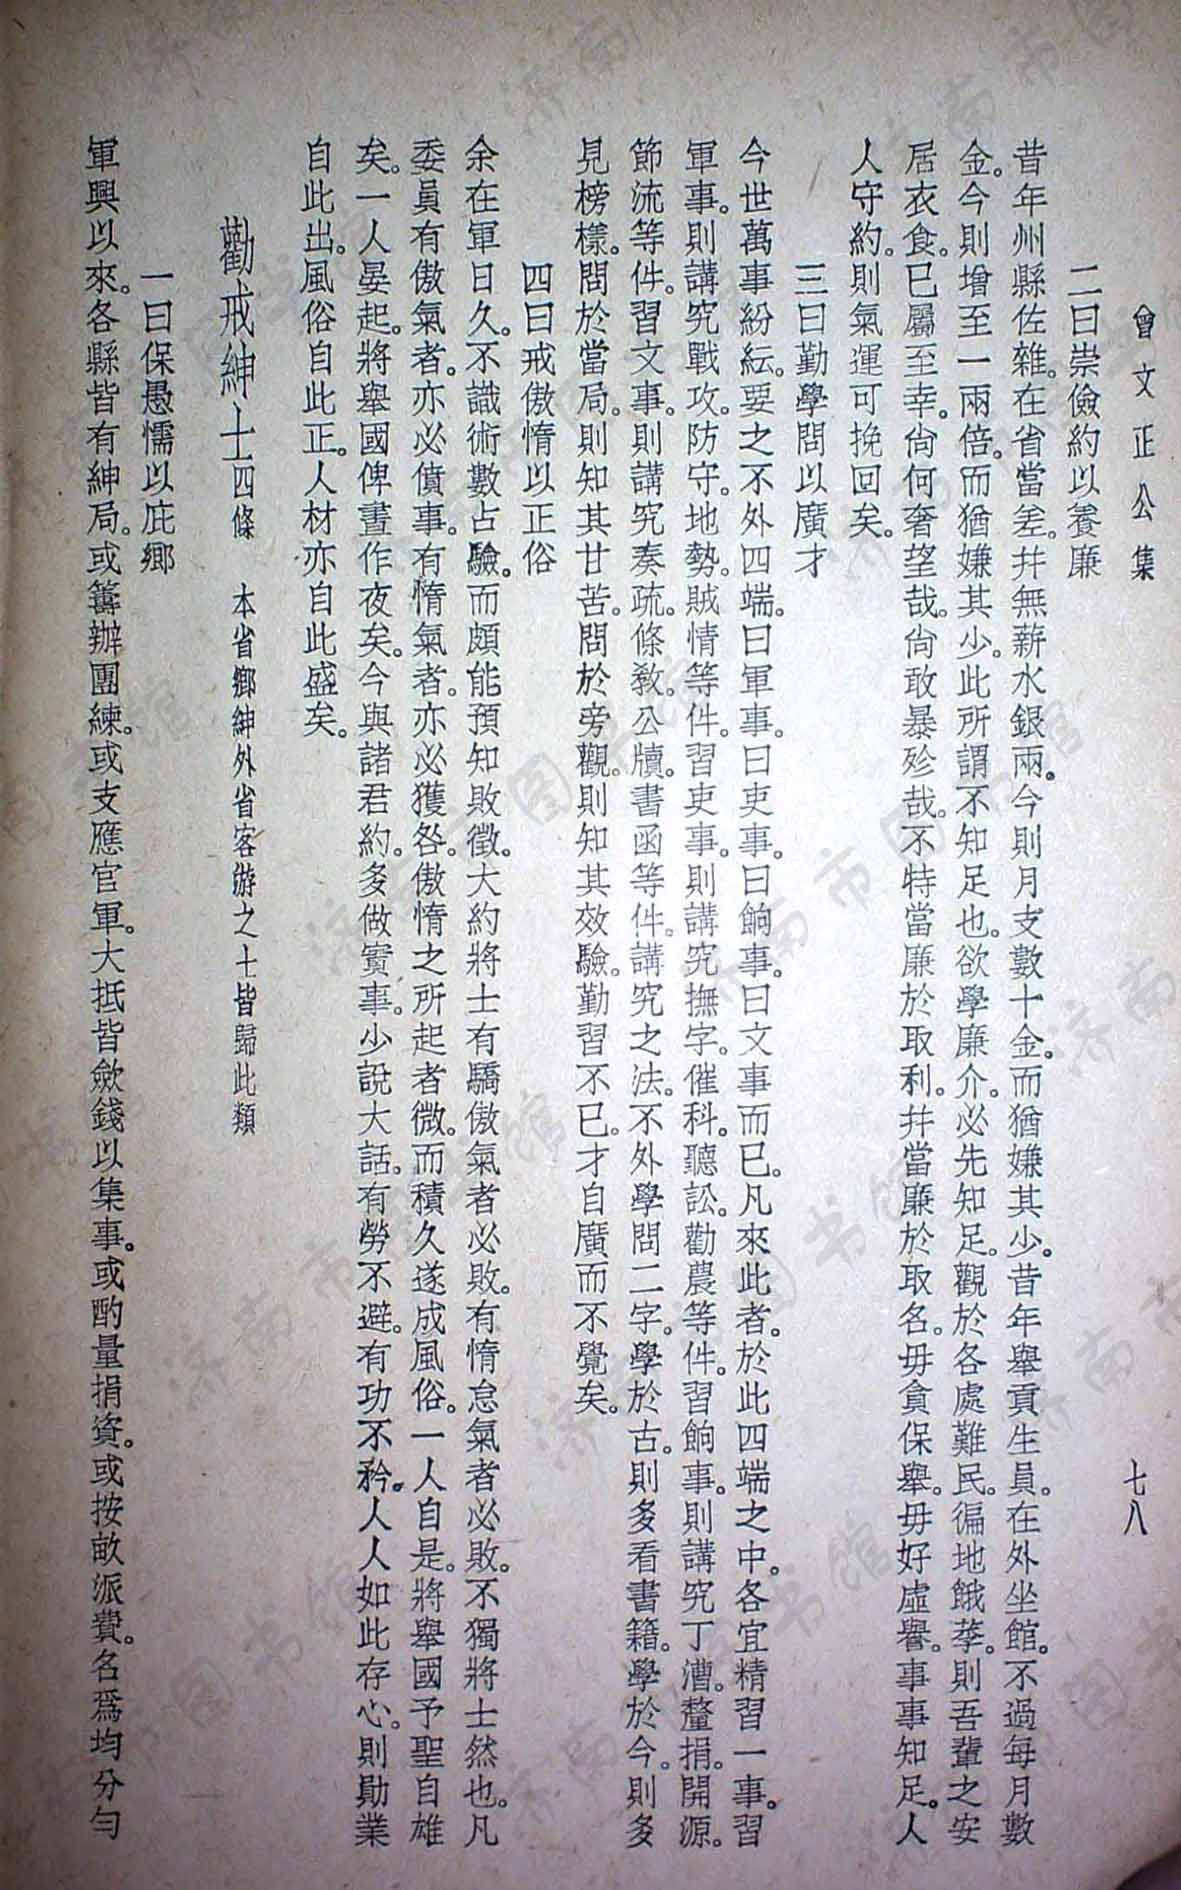 曾文正公集　七八
二曰崇儉約以養廉
昔年州縣佐雜。在省當差。幷無薪水銀兩。今則月支數十金。而猶嫌其少。昔年舉貢生員。在外坐館。不過每月數
金。今則增至一兩倍。而猶嫌其少。此所謂不知足也。欲學廉介。必先知足。觀於各處難民。徧地餓莩。則吾輩之安
居衣食。已屬至幸。尙何奢望哉。尙敢暴殄哉。不特當廉於取利。幷當廉於取名。毋貪保舉。毋好虛譽。事事知足。人
人守約。則氣運可挽回矣。
三曰勤學問以廣才
今世萬事紛紜。要之不外四端。曰軍事。曰吏事。曰餉事。曰文事而已。凡來此者。於此四端之中。各宜精習一事。習
軍事。則講究戰攻。防守。地勢。賊情等件。習吏事。則講究撫字。催科。聽訟。勸農等件。習餉事。則講究丁漕。釐捐。開源。
節流等件。習文事。則講究奏疏。條敎。公牘。書函等件。講究之法。不外學問二字。學於古。則多看書籍。學於今。則多
見榜樣。問於當局。則知其甘苦。問於旁觀。則知其效驗。勤習不已。才自廣而不覺矣。
四曰戒傲惰以正俗
余在軍日久。不識術數占驗。而頗能預知敗徵。大約將士有驕傲氣者必敗。有惰怠氣者必敗。不獨將士然也。凡
委員有傲氣者。亦必僨事。有惰氣者。亦必獲咎。傲惰之所起者微。而積久遂成風俗。一人自是。將舉國予聖自雄
矣。一人晏起。將舉國俾晝作夜矣。今與諸君約。多做實事。少說大話。有勞不避。有功不矜。人人如此存心。則勛業
自此出。風俗自此正。人材亦自此盛矣。
勸戒紳士四條　本省鄉紳外省客游之士皆歸此類
一曰保愚懦以庇鄉
軍興以來。各縣皆有紳局。或籌辦團練。或支應官軍。大抵皆斂錢以集事。或酌量捐資。或按畝派費。名爲均分勻